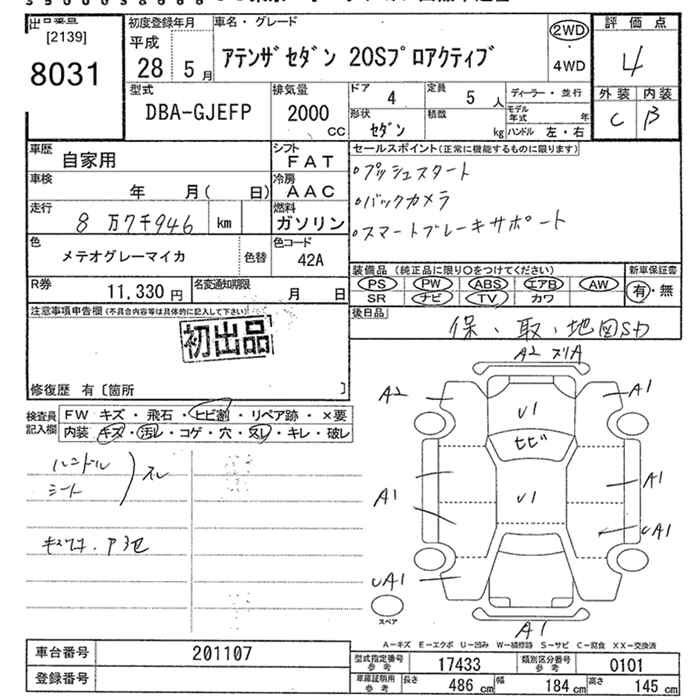 出品番号
[2139]
8031
初度登録年月
平成
28 5月
車名・グレード
アテンザセダン 20Sプロアクティブ
2WD
・
4WD
評価点
4
外装 内装
C B
型式
DBA-GJEFP
排気量
2000
CC
ドア 4
定員 5 人
形状 セダン
積載 kg
ディーラー・並行
モデル年式 年
ハンドル 左・右
車歴 自家用
シフト FAT
車検 年 月( 日)
冷房 AAC
走行 8万7千946 km
燃料 ガソリン
色 メテオグレーマイカ 色替
色コード 42A
R券 11,330円
名変通知期限 月 日
セールスポイント(正常に機能するものに限ります)
○プッシュスタート
○バックカメラ
○スマートブレーキサポート
装備品 (純正品に限り○をつけてください)
PS PW ABS エアB AW
SR ナビ TV カワ
新車保証書
有・無
後日品
保、取、地図SD
注意事項申告欄 (不具合内容等は具体的に記入して下さい)
初出品
修復歴 有〔箇所 〕
検査員記入欄
FW キズ・飛石・ヒビ割・リペア跡・×要
内装・キズ・汚レ・コゲ・穴・スレ・キレ・破レ
ハンドル
シート
スレ
A2 スリA
A2
A1
U1
ヒビ
A1
A1
U1
UA1
UA1
A1
スペア
A－キズ E－エクボ U－凹み W－補修跡 S－サビ C－腐食 XX－交換済
車台番号 201107
登録番号
型式指定番号 参考 17433
類別区分番号 参考 0101
車庫証明用 参考 長さ 486 cm 幅 184 cm 高さ 145 cm